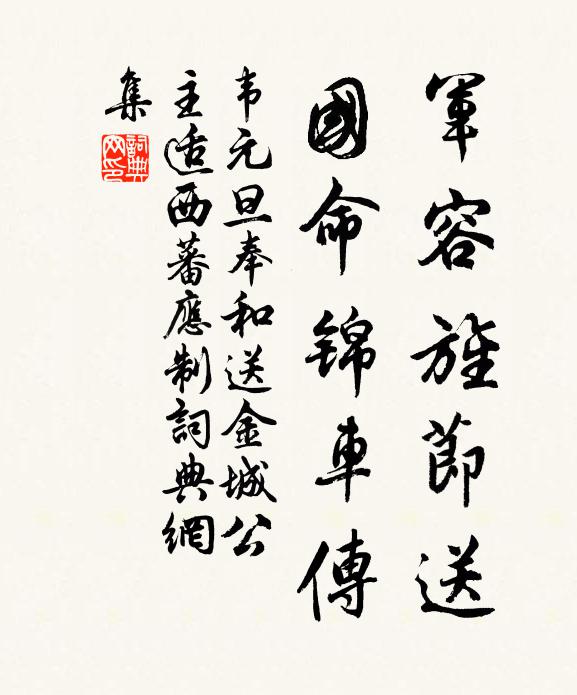 軍容旌節送
國命錦車傳
韦元旦奉和送金城公
主适西蕃應制詞典網
集
詞典網印